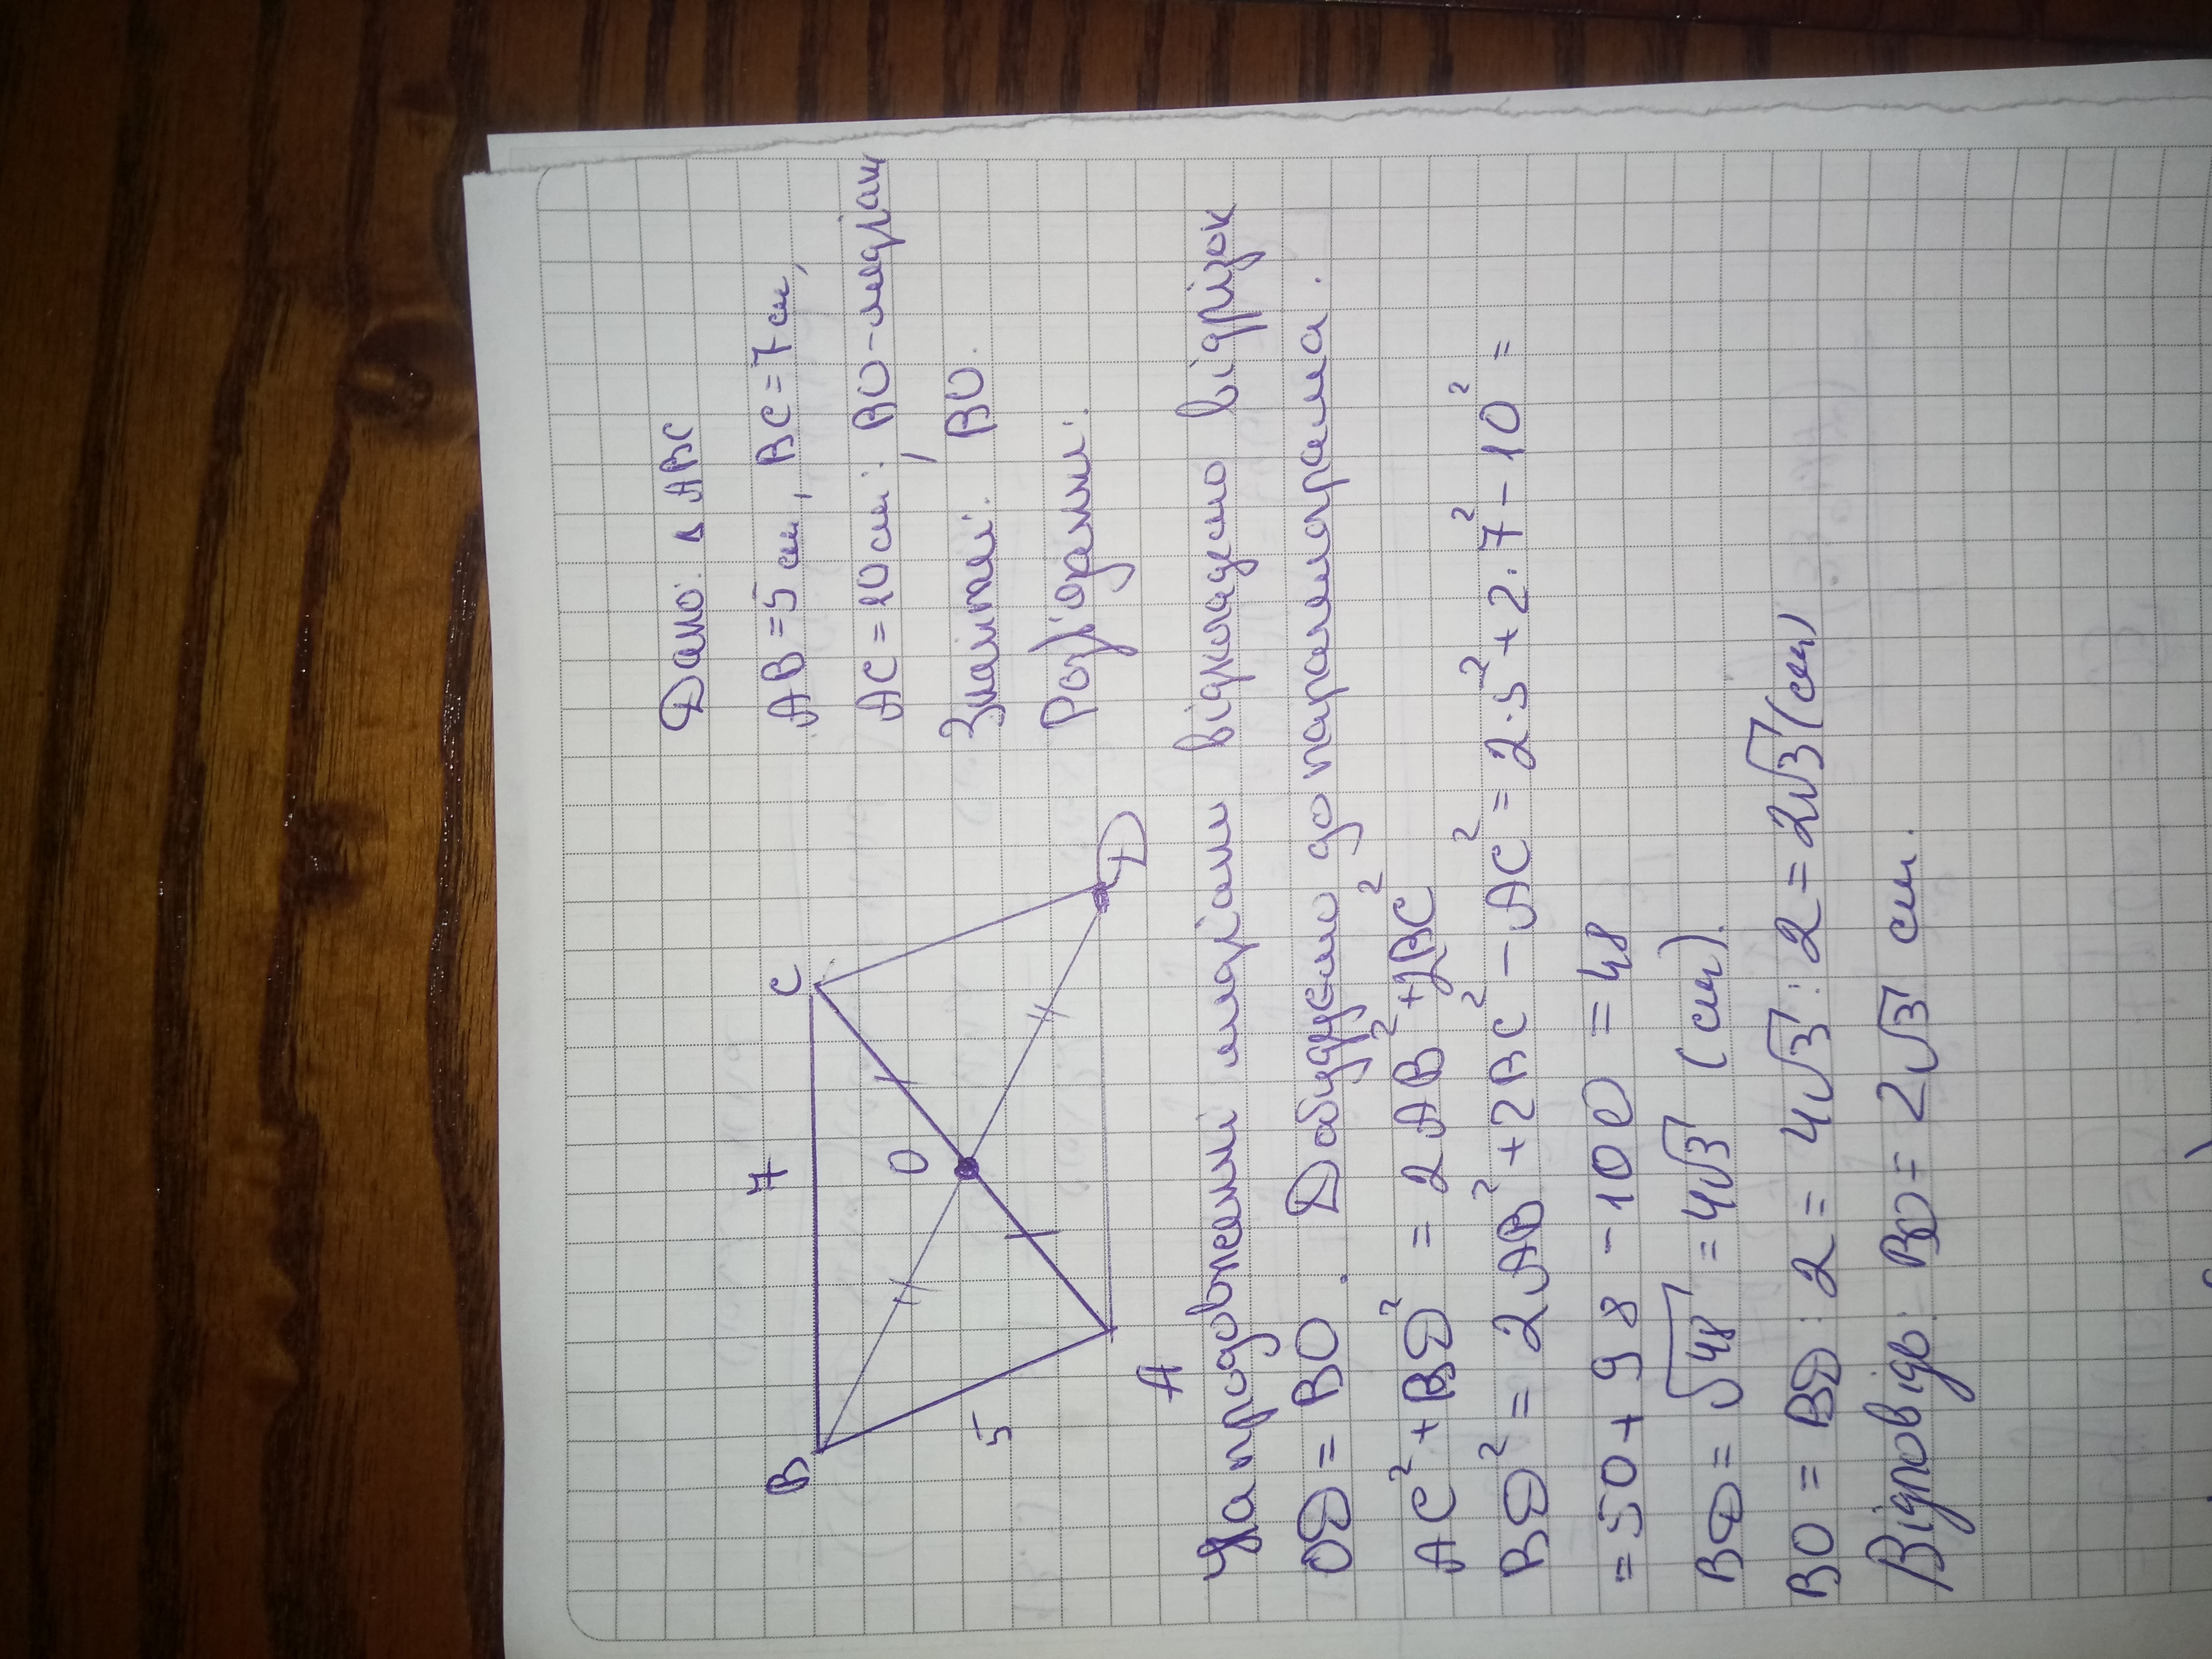 Дано: Δ ABC
AB = 5 см, BC = 7 см,
AC = 10 см; BO - медіан
Знайти: BO.
Розв'язання:
B
7
C
O
5
A
D
На продовженні медіани відкладемо відрізок
OD = BO. Добудуємо до паралелограма.
AC² + BD² = 2AB² + 2BC²
BD² = 2AB² + 2BC² - AC² = 2·5² + 2·7² - 10² =
= 50 + 98 - 100 = 48
BD = √48 = 4√3 (см).
BO = BD : 2 = 4√3 : 2 = 2√3 (см)
Відповідь: BO = 2√3 см.